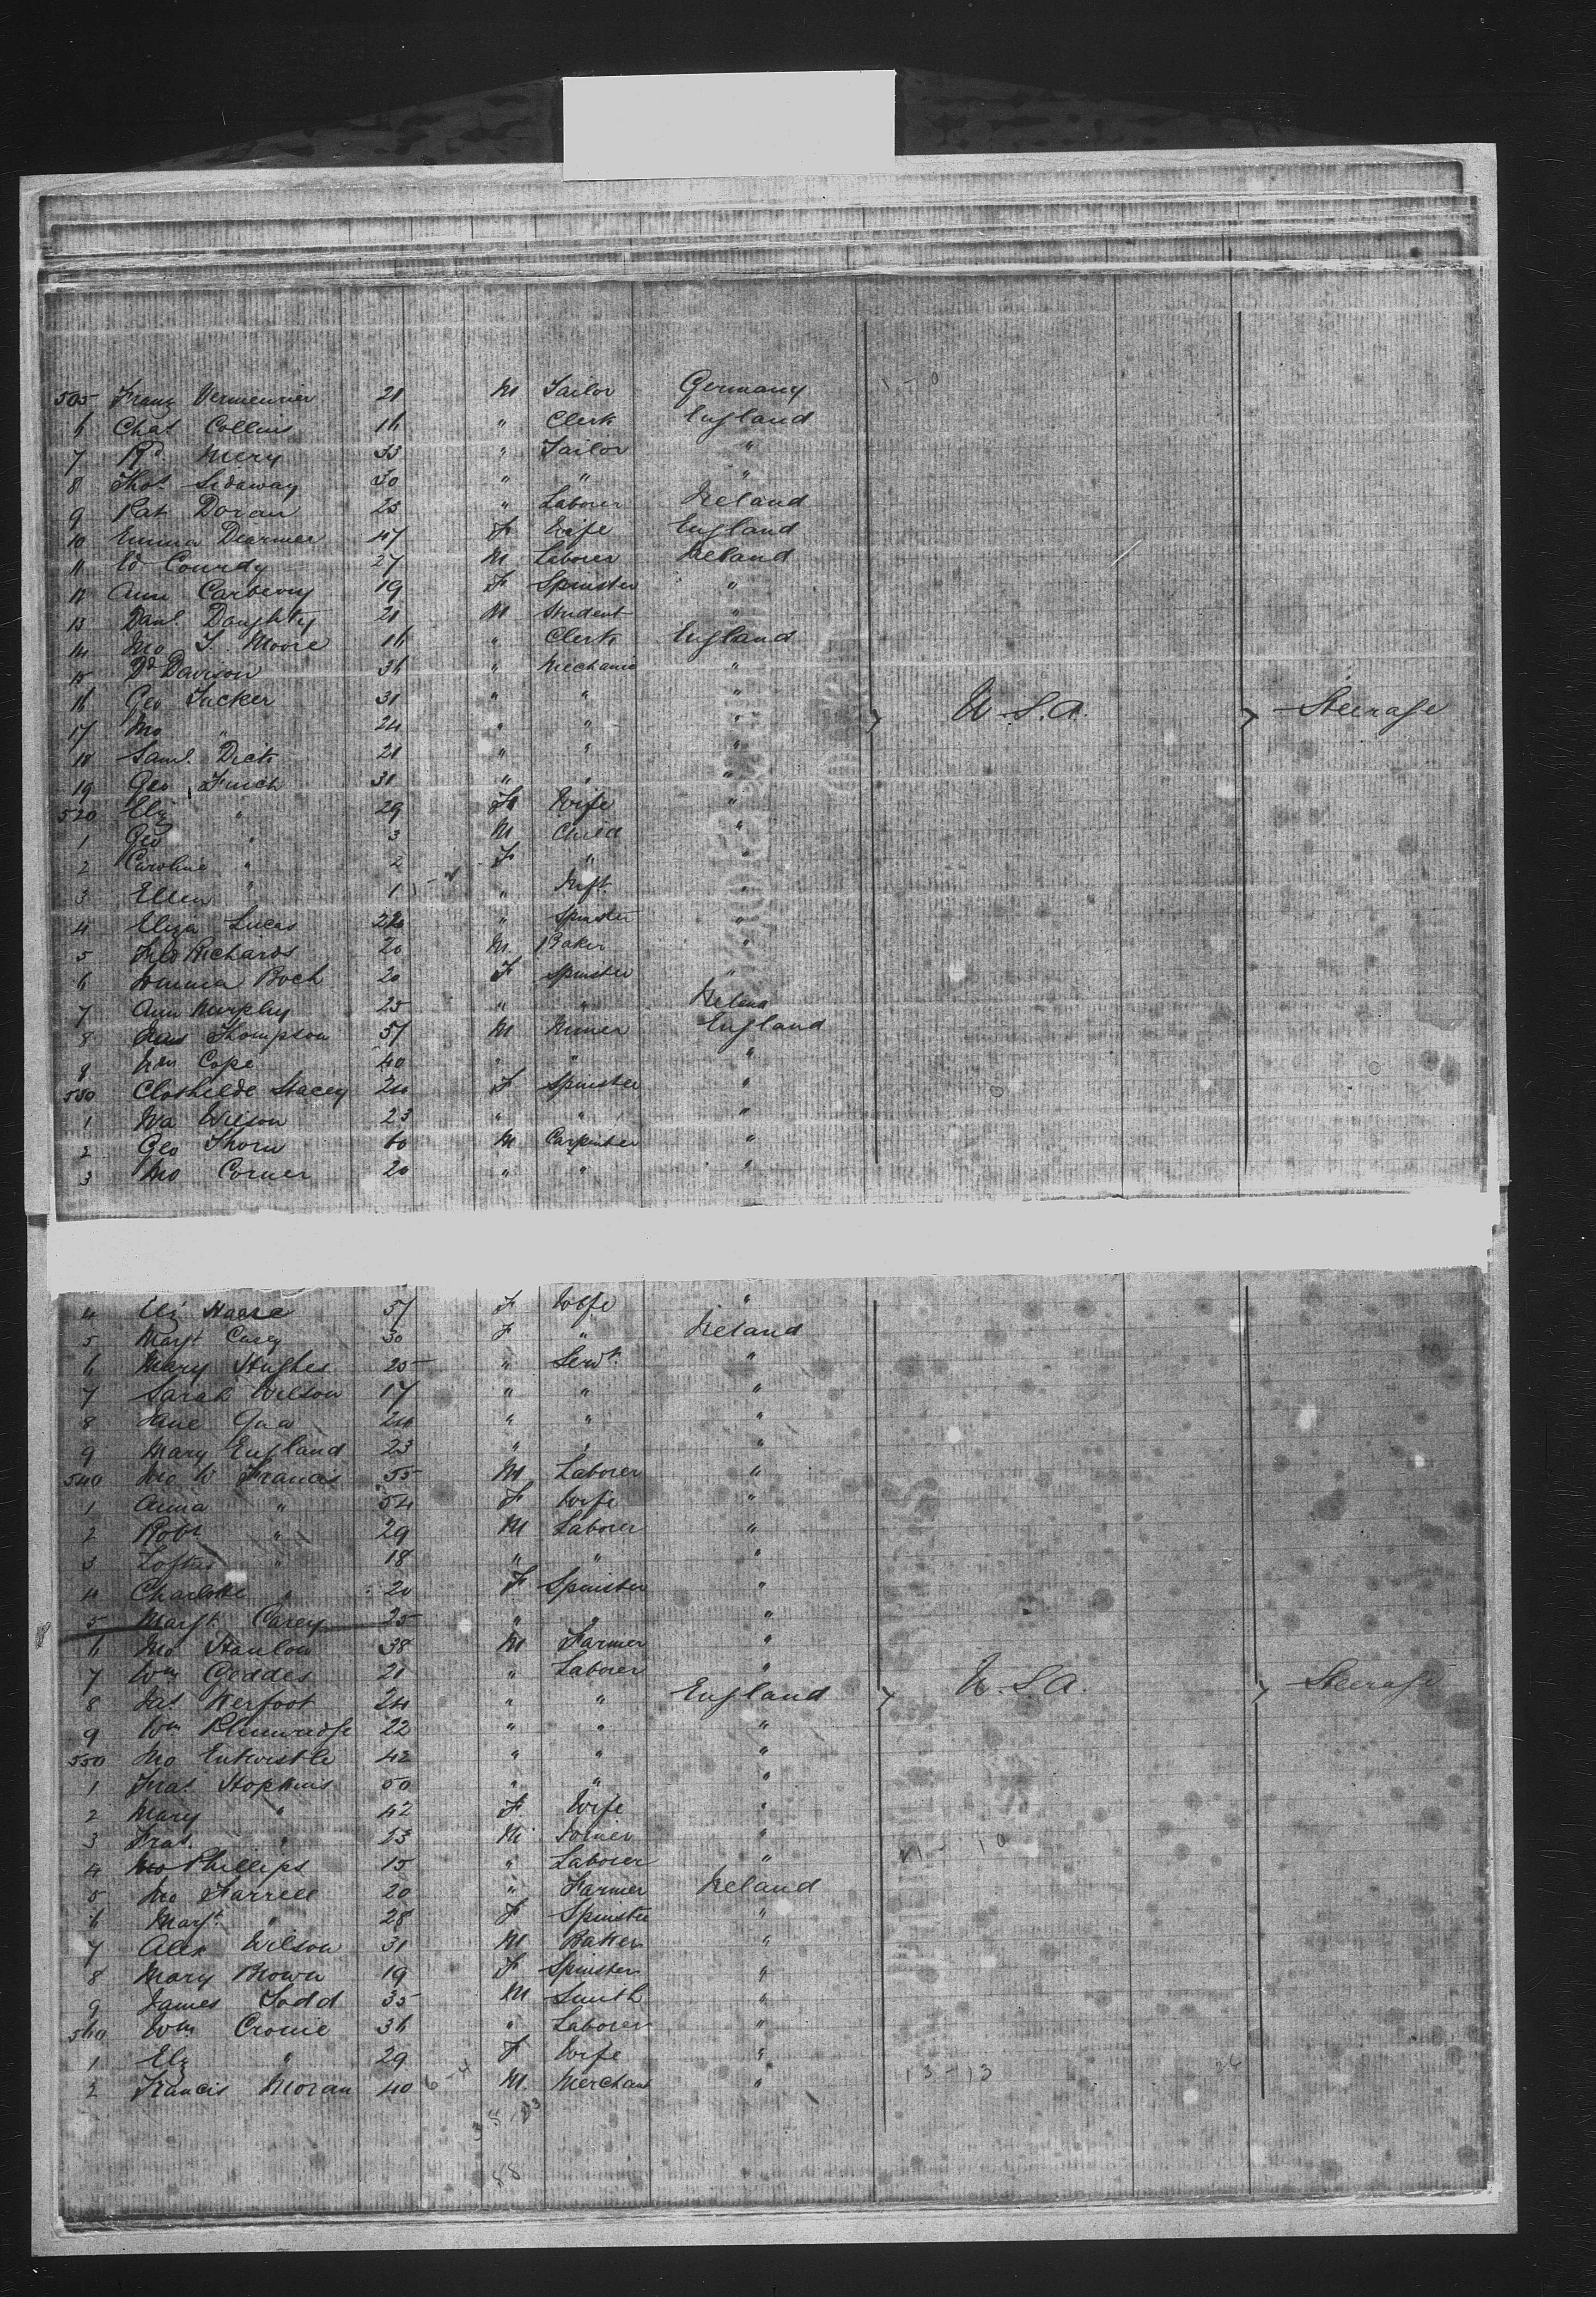 505 Franz Vermeurier 21 M Tailor Germany
6 Chas Collins 16 " Clerk England
7 Rd Mery 33 " Tailor "
8 Thos Sidaway 30 " " "
9 Pat Doran 23 " Laborer Ireland
10 Emma Dearmer 47 F Wife England
11 Ed Courdy 27 M Laborer Ireland
12 Ann Carberry 19 F Spinster "
13 Danl Doughty 21 M Student "
14 Jno T. Moore 16 " Clerk England
15 Dd Davison 36 " Mechanic "
16 Geo Tucker 31 " " " U.S.A. Steerage
17 Jno " 24 " " "
18 Saml. Dick 21 " " "
19 Geo Finch 31 " " "
520 Eliz " 29 F Wife "
1 Geo " 3 M Child "
2 Caroline " 2 F " "
3 Ellen " 1 " Inft. "
4 Eliza Lucas 22 " Spinster "
5 Fred Richards 20 M. Baker "
6 Emma Boch 20 F Spinster "
7 Ann Murphy 25 " " Ireland
8 Thompson 57 M Miner England
9 Wm Cope 40 " " "
530 Clothilde Stacey 24 F Spinster "
1 Wilson 23 " " "
2 Geo Thorn 60 M Carpenter "
3 Jno Corner 20 " " "
4 Eliz 57 F Wife "
5 Margt Carey 30 F " Ireland
6 Mary Hughes 25 " Servt. "
7 Sarah Wilson 17 " " "
8 Jane Gaw 24 " " "
9 Mary England 23 " " "
540 Jno W Francis 55 M Laborer "
1 Anna " 54 F Wife "
2 Robt " 29 M Laborer "
3 Loftus " 18 " " "
4 Charlotte " 20 F Spinster "
5 Margt. Carey 25 " " "
6 Jno Hanlon 38 M Farmer "
7 Wm Geddes 21 " Laborer "
8 Jas. Kerfoot 24 " " England U.S.A. Steerage
9 Wm 22 " " "
550 Jno Entwistle 42 " " "
1 Fras. Hopkins 50 " " "
2 Mary " 42 F. Wife "
3 Fras. " 23 M Joiner "
4 Jno Phillips 15 " Laborer "
5 Jno Farrell 20 " Farmer Ireland
6 Margt. " 28 F Spinster "
7 Alex Wilson 31 M Baker "
8 Mary Brown 19 F Spinster "
9 James Todd 35 M Smith "
560 Wm Cronie 36 " Laborer "
1 Elz " 29 F Wife "
2 Francis Moran 40 M. Merchant " 13-13